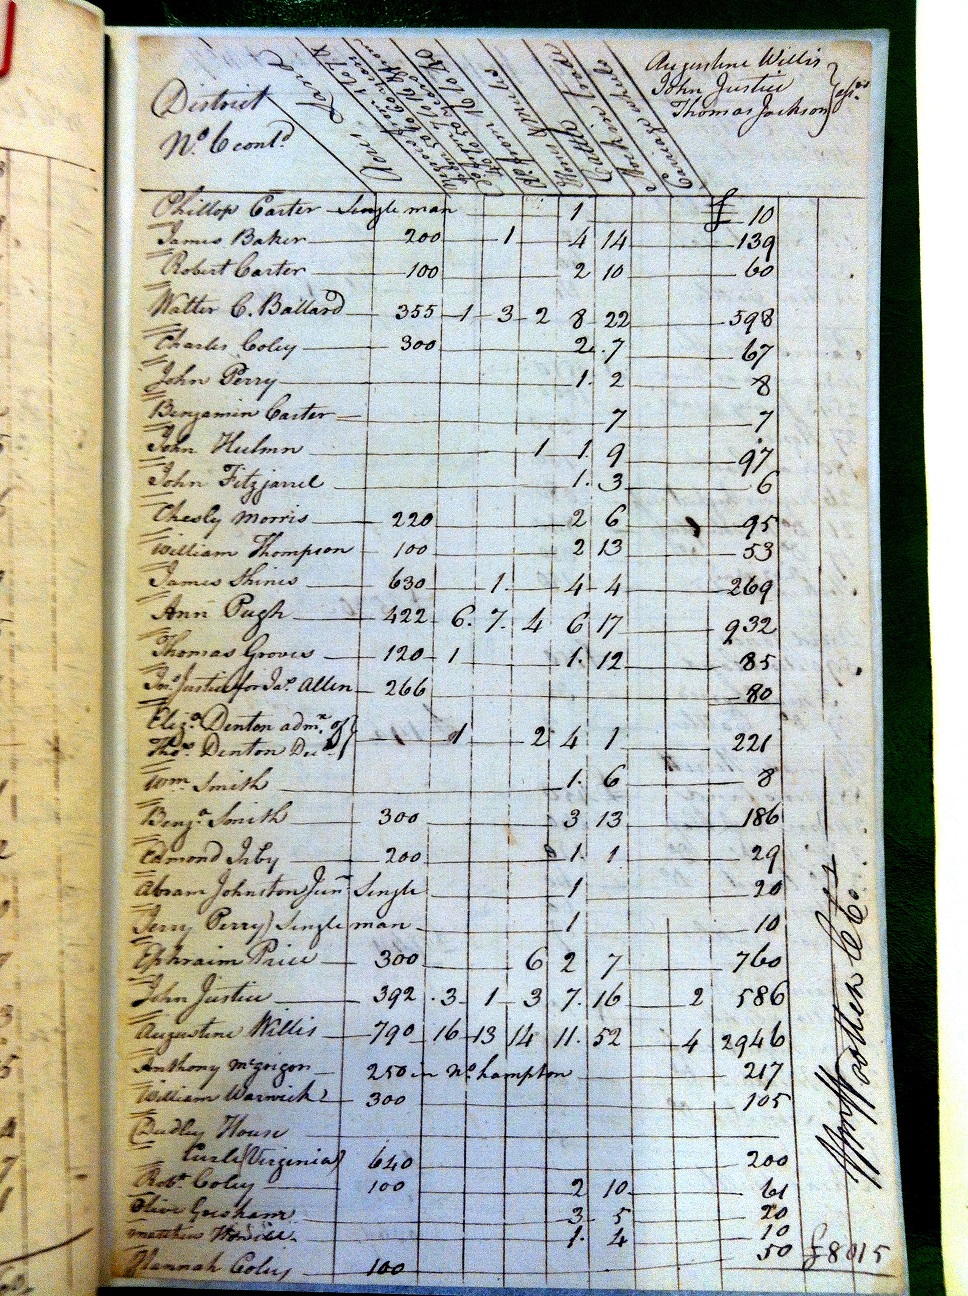 District
No. 6 contd
Acres Land
Horses & mules
Cattle
Carriage wheels
Augustine Willis
John Justice
Thomas Jackson } assrs
Phillop Carter Single man 1 £ 10
James Baker 200 1 4 14 139
Robert Carter 100 2 10 60
Walter C. Ballard 355 1 3 2 8 22 598
Charles Coley 300 2 7 67
John Perry 1 2 8
Benjamin Carter 7 7
John 1 1 9 97
John Fitzjarrel 1 3 6
Chesly Morris 220 2 6 95
William Thompson 100 2 13 53
James Shines 630 1 4 4 269
Ann Pugh 422 6 7 4 6 17 932
Thomas Groves 120 1 1 12 85
Jno. Justice for Jas. Allen 266 80
Eliza. Denton admx. of }
Thos. Denton Decd } 1 2 4 1 221
Wm. Smith 1 6 8
Benja. Smith 300 3 13 186
Edmond Irby 200 1 1 29
Abram Johnston Junr Single 1 20
Jerry Perry) Single man 1 10
Ephraim Price 300 6 2 7 760
John Justice 392 3 1 3 7 16 2 586
Augustine Willis 790 16 13 14 11 52 4 2946
Anthony 250 in No. hampton 217
William Warwick 300 105
Dudley House
(Virginia) 640 200
Robt Coley 100 2 10 61
Olive Gresham 3 5 20
1 4 10
Hannah Coley 100 50 £8015